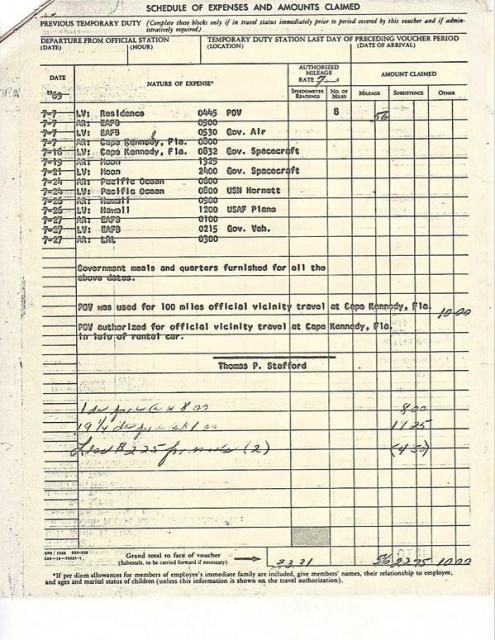 SCHEDULE OF EXPENSES AND AMOUNTS CLAIMED
PREVIOUS TEMPORARY DUTY (Complete these blocks only if in travel status immediately prior to period covered by this voucher and if administratively required.)
DEPARTURE FROM OFFICIAL STATION
(DATE) (HOUR)
TEMPORARY DUTY STATION LAST DAY OF PRECEDING VOUCHER PERIOD
(LOCATION) (DATE OF ARRIVAL)
DATE
1969
NATURE OF EXPENSE*
AUTHORIZED MILEAGE RATE 7
SPEEDOMETER READINGS
NO. OF MILES
AMOUNT CLAIMED
MILEAGE SUBSISTENCE OTHER
7-7 LV: Residence 0445 POV 8 56
7-7 AR: EAFB 0500
7-7 LV: EAFB 0530 Gov. Air
7-7 AR: Cape Kennedy, Fla. 0800
7-16 LV: Cape Kennedy, Fla. 0832 Gov. Spacecraft
7-19 AR: Moon 1325
7-21 LV: Moon 2400 Gov. Spacecraft
7-24 AR: Pacific Ocean 0600
7-24 LV: Pacific Ocean 0800 USN Hornett
7-26 AR: Hawaii 0900
7-26 LV: Hawaii 1200 USAF Plane
7-27 AR: EAFB 0100
7-27 LV: EAFB 0215 Gov. Veh.
7-27 AR: LRL 0300
Government meals and quarters furnished for all the
above dates.
POV was used for 100 miles official vicinity travel at Cape Kennedy, Fla. 10.00
POV authorized for official vicinity travel at Cape Kennedy, Fla.
in leiu of rental car.
Thomas P. Stafford
8.00
(2) (4.50)
Grand total to face of voucher
(Subtotals, to be carried forward if necessary)
*If per diem allowances for members of employee's immediate family are included, give members' names, their relationship to employee,
and ages and marital status of children (unless this information is shown on the travel authorization).